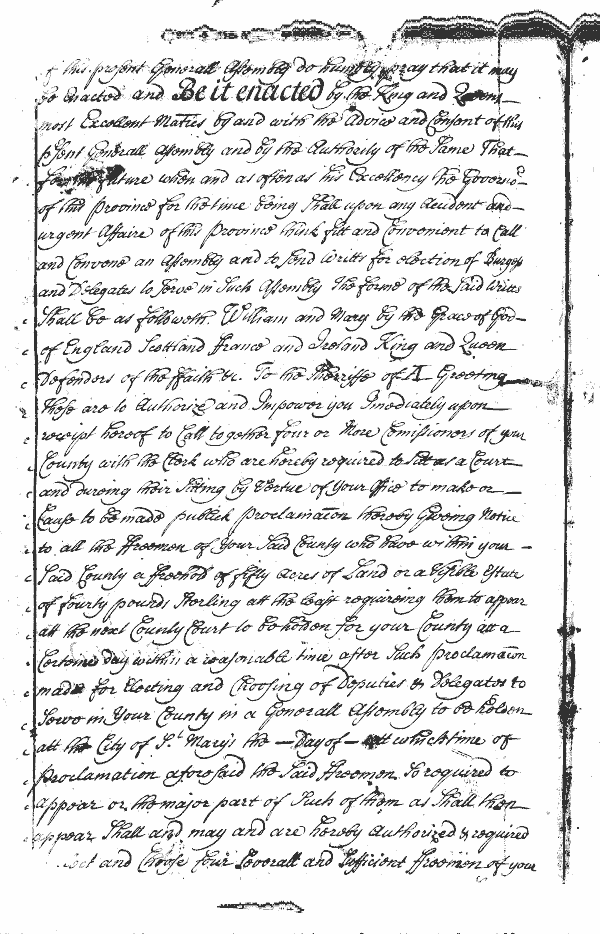 of this present Generall Assembly do humbly pray that it may
be Enacted and Be it enacted by the King and Queens
most Excellent Maties by and with the Advice and Consent of this
psent Generall Assembly and by the Authority of the same That
for the future when and as often as his Excellency the Governor
of this Province for the time being Shall upon any Accident and
urgent Affaire of this Province think fitt and Convenient to Call
and Convene an Assembly and to Send Writts for election of Burgess
and Delegates to Serve in Such Assembly The forme of the Said Writts
Shall be as followeth. William and Mary by the Grace of God
of England Scottland ffrance and Ireland King and Queen
Defenders of the ffaith &c. To the Sherriffe of A Greeting
These are to Authorize and Impower you Imediately upon
receipt hereof to Call together four or More Comissioners of your
County with the Clerk who are hereby required to Sitt as a Court
and dureing their Sitting by Vertue of Your Office to make or
Cause to be made publick Proclamacon thereby Giveing Notice
to all the ffreemen of Your Said County who have within your
Said County a ffreehold of fifty Acres of Land or a Visible Estate
of fourty pounds Sterling att the least requireing them to appear
att the next County Court to be holden for your County att a
Certaine day within a reasonable time after Such Proclamacon
made for Electing and Choosing of Deputies & Delegates to
Serve in Your County in a Generall Assembly to be holden
att the City of St. Mary's the — Day of — att which time of
Proclamation aforesaid the Said ffreemen So required to
appear or the major part of Such of them as Shall then
appear Shall and may and are hereby Authorized & required
and Choose four Severall and Sufficient ffreemen of your